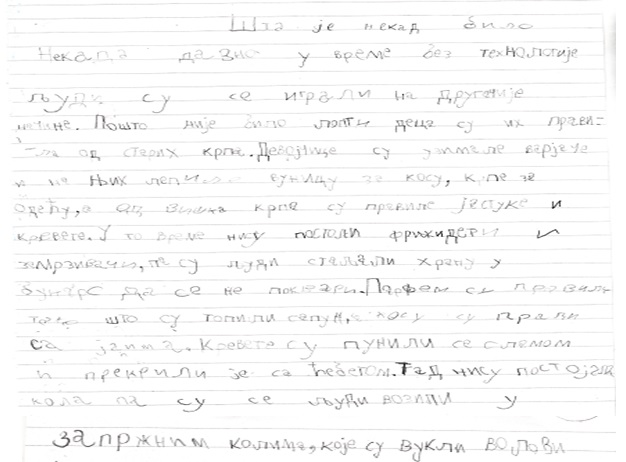 Шта је некад било
Некада давно у време без технологије
људи су се играли на другачије
начине. Пошто није било лопти деца су их прави-
-ла од старих крпа. Девојчице су узимале варјаче
и на њих лепиле вуницу за косу, крпе за
одећу, а од вишка крпа су правиле јастуке и
кревете. У то време нису постоли фрижидери и
замрзивачи, па су људи стављали храну у
бунаре да се не поквари. Парфем су правили
тако што су топили сапун, а косу су прали
са јајима. Кревете су пунили се сламом
и прекрили је са ћебетом. Тад нису постојала
кола па су се људи возили у
запржним колима, које су вукли волови